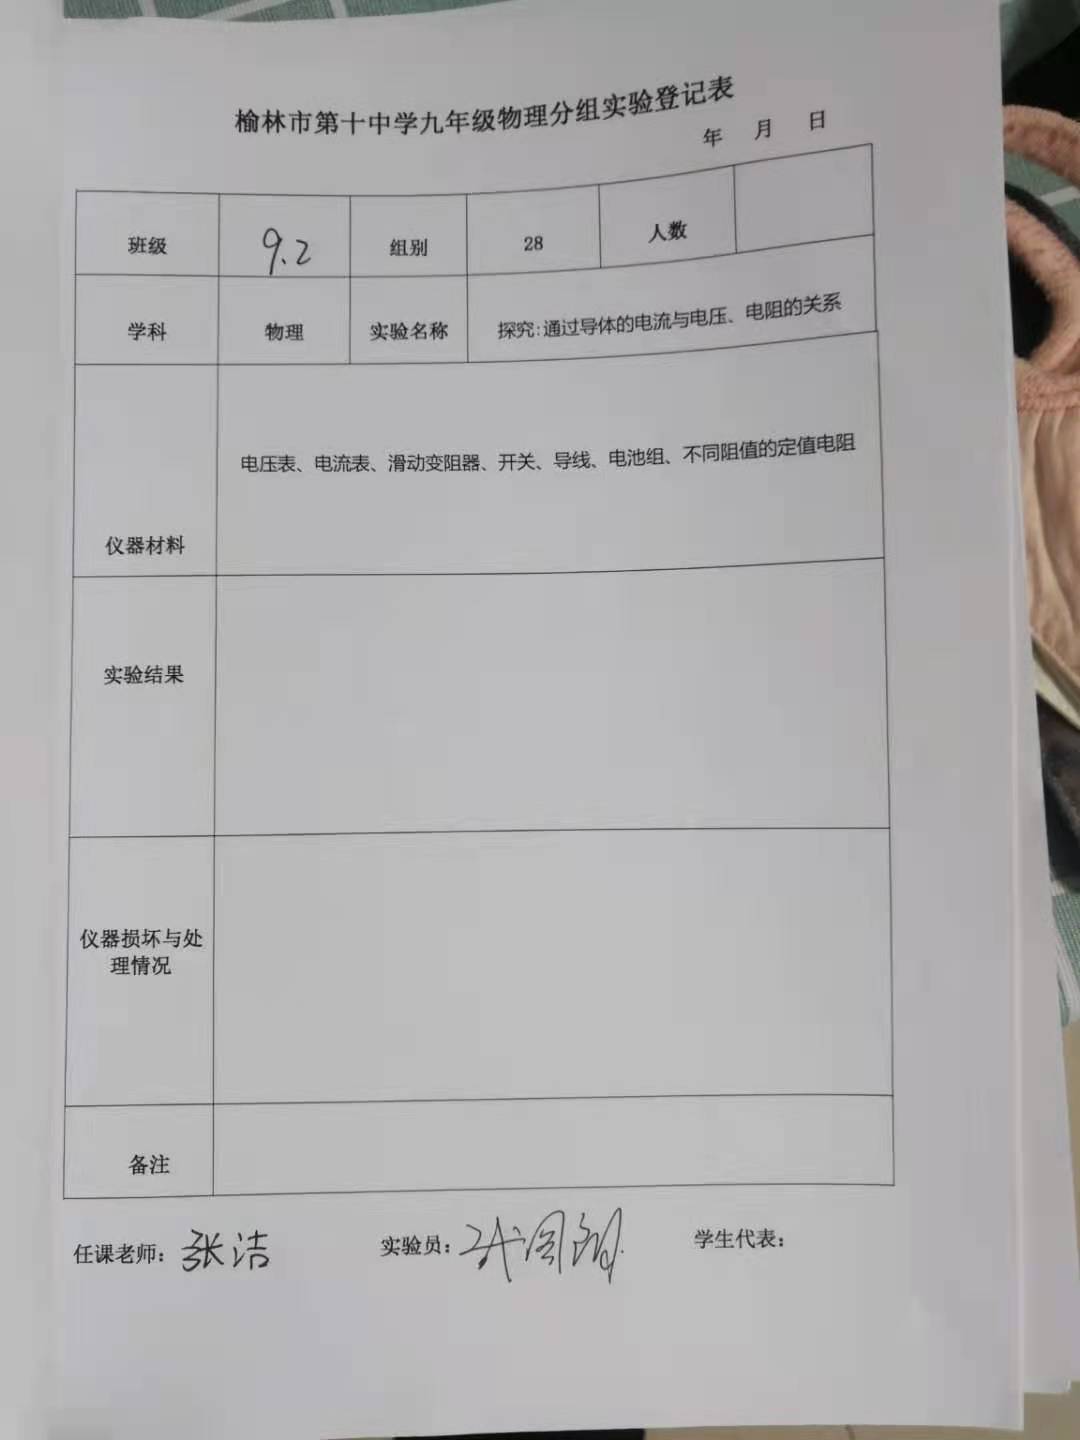 榆林市第十中学九年级物理分组实验登记表
年 月 日
班级 9.2 组别 28 人数
学科 物理 实验名称 探究:通过导体的电流与电压、电阻的关系
电压表、电流表、滑动变阻器、开关、导线、电池组、不同阻值的定值电阻
仪器材料
实验结果
仪器损坏与处
理情况
备注
任课老师: 张洁 实验员: 学生代表: